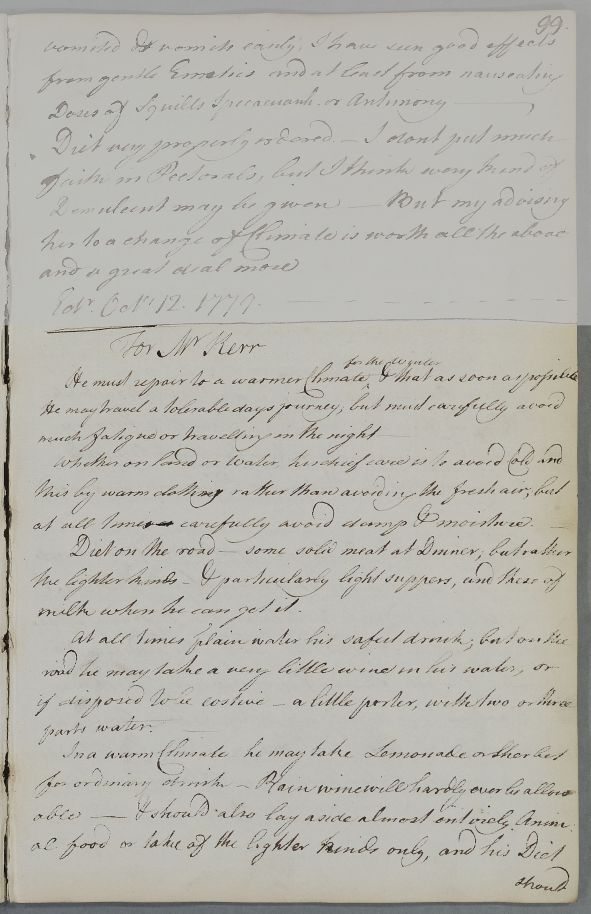 99.
vomited & vomits easily, I have seen good effects
from gentle Emetics and at least from nauseating
Doses of Squills Ipecacuanh. or Antimony
Diet very properly ordered – I dont put much
faith in Pectorals, but I think every kind of
Demulcent may be given – But my advising
her to a change of Climate is worth all the above
and a great deal more
Edr. Octr. 12. 1779.
For Mr Kerr
He must repair to a warmer Climate for the Winter & that as soon as possible
He may travel a tolerable days journey, but must carefully avoid
much fatigue or travelling in the night
Whether on land or Water his chief care is to avoid Cold and
this by warm clothing rather than avoiding the fresh air; but
at all times carefully avoid damp & moisture. –
Diet on the road – some solid meat at Dinner; but rather
the lighter kinds – & particularly light suppers, and these of
milk when he can get it.
At all times plain water his safest drink; but on the
road he may take a very little wine in his water, or
if disposed to be costive – a little porter, with two or three
parts water.
In a warm Climate he may take Lemonade or Sherbet
for ordinary drink – Plain wine will hardly ever be allow
able – & should also lay aside almost entirely Anim
al food or take of the lighter kinds only, and his Diet
should